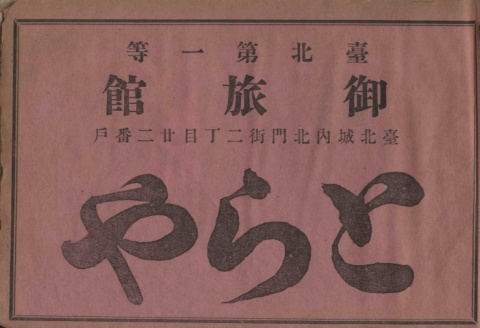 臺北第一等
御旅館
臺北城内北門街二丁目廿二番戶
とらや